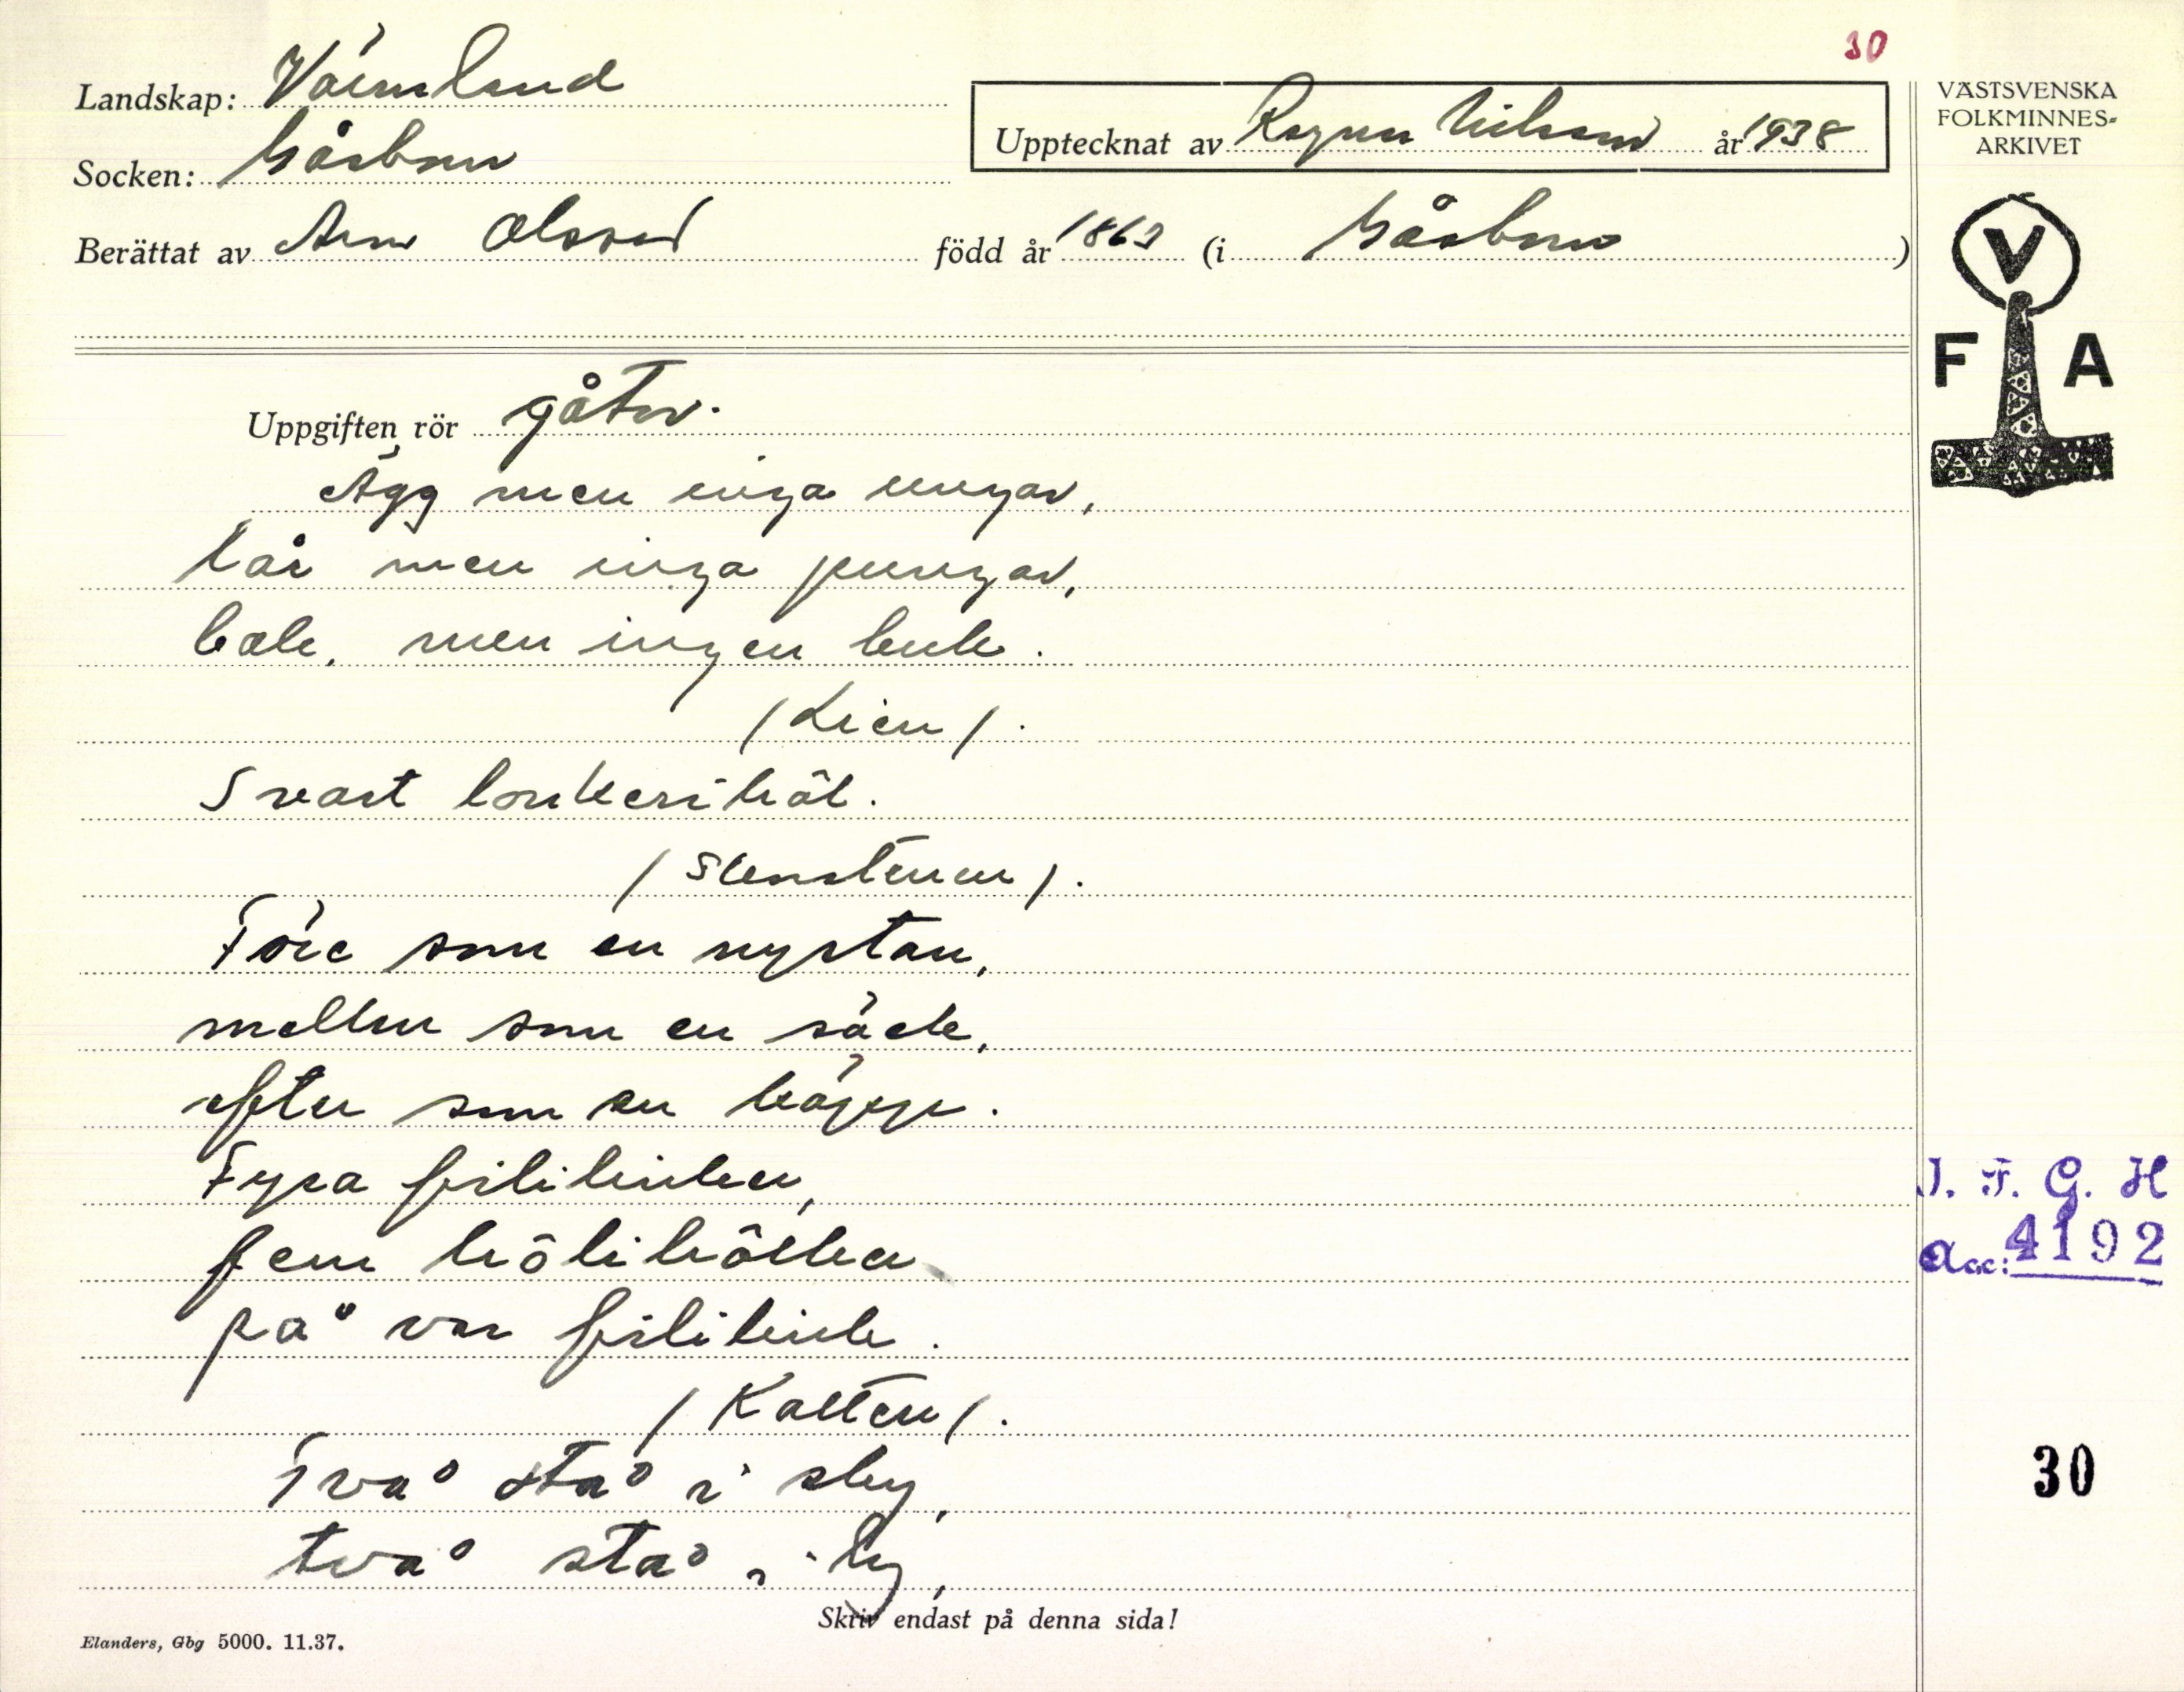 30
Landskap: Värmland
Socken: Gåsborn
Upptecknat av Ragnar Nilsson år 1938
Berättat av Olsson född år 1863 (i Gåsborn)
VÄSTSVENSKA
FOLKMINNES-
ARKIVET
V
F A
Uppgiften rör gåtor.
Ägg men inga ungar,
lår men inga pungar,
bak, men ingen buk.
(Lien).
Svart i hål.
Före som en nystan,
mellan som en säck,
efter som en käpp.
Fyra frilikinker,
fem
på var frilikink.
(Katten).
Två stå i sky,
två stå i by,
Skriv endast på denna sida!
Elanders, Gbg 5000. 11.37.
I. F. G. H
Acc: 4192
30